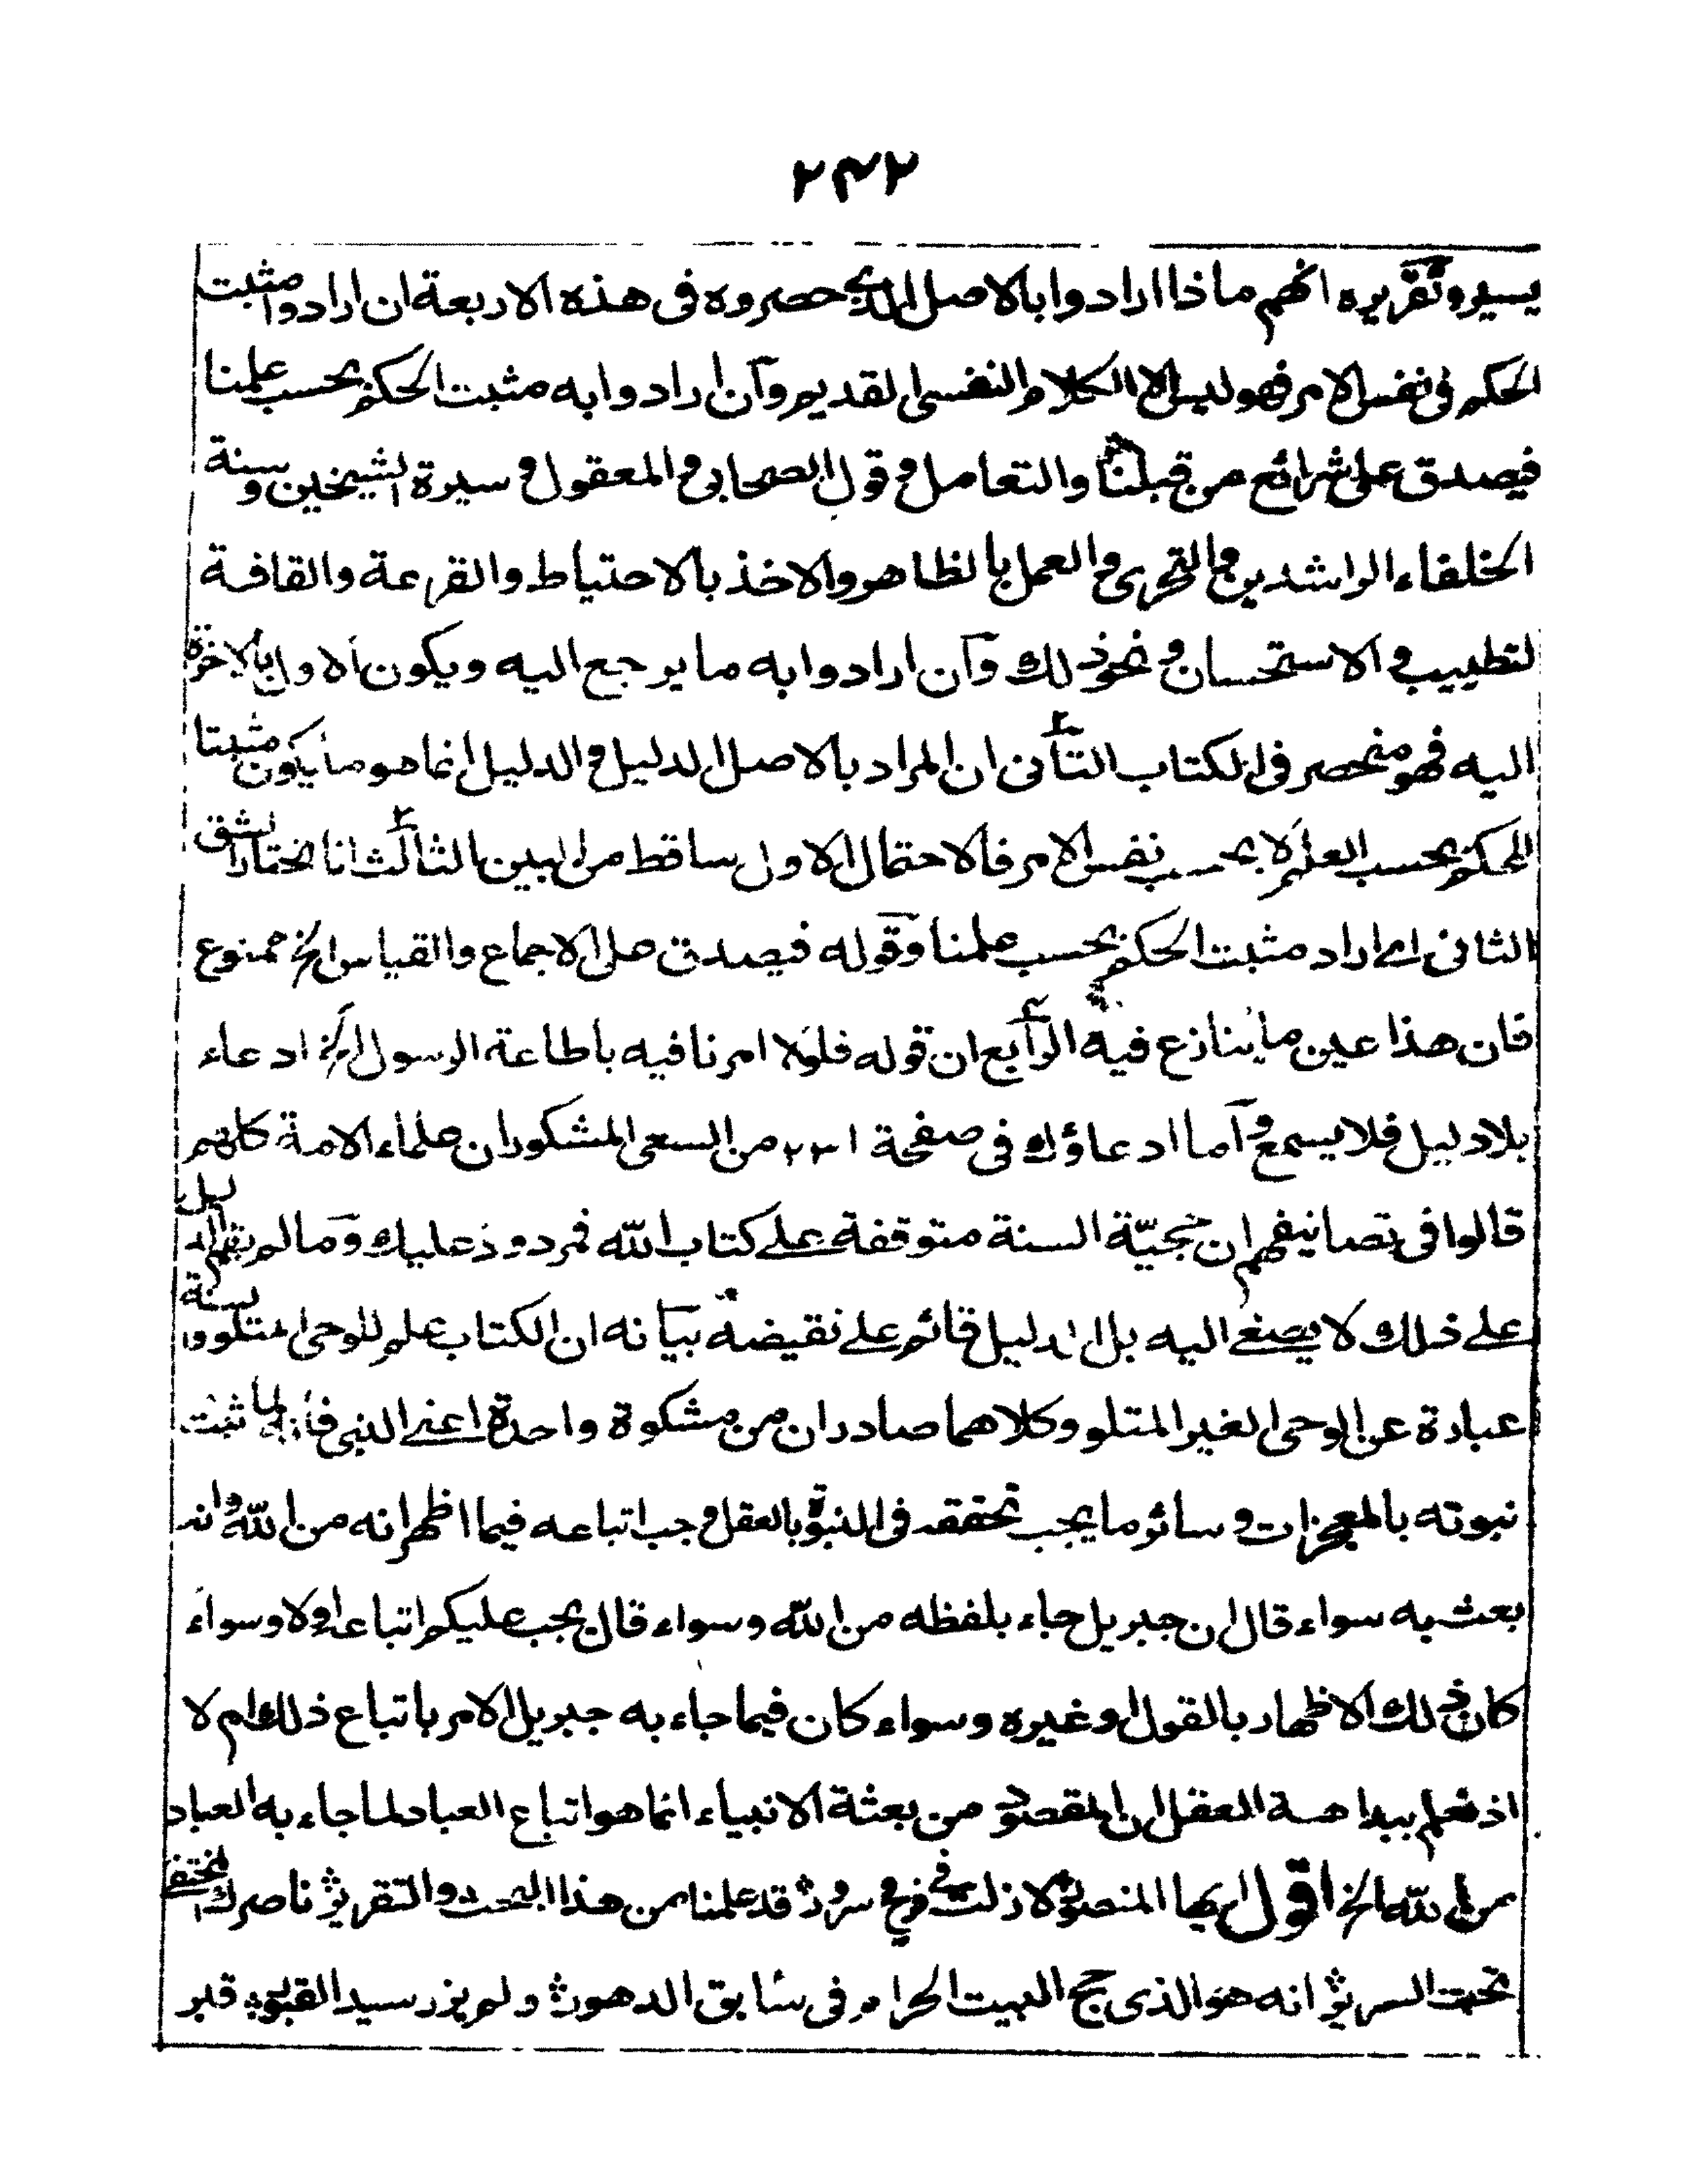 ٢٤٢
يسير وتقريره انهم ماذا ارادوا بالاصل الذى حصروه فى هذه الاربعة ان ارادوا مثبت
الحكم فى نفس الامر فهو ليس الا الكلام النفسى القديم وآن ارادوا به مثبت الحكم بحسب علمنا
فيصدق على شرائع من قبلنا والتعامل وقول الصحابى والمعقول وسيرة الشيخين وسنة
الخلفاء الراشدين والتحرى والعمل بالظاهر والاخذ بالاحتياط والقرعة والقافة
لتطييب والاستحسان ونحو ذلك وآن ارادوا به ما يرجع اليه ويكون الاول بالاخرة
اليه فهو منحصر فى الكتاب الثانى ان المراد بالاصل الدليل والدليل انما هو ما يكون مثبتا
للحكم بحسب العلم لا بحسب نفس الامر فالاحتمال الاول ساقط من البين الثالث انا نختار الشق
الثانى اى اراد مثبت الحكم بحسب علمنا وقوله فيصدق على الاجماع والقياس الخ ممنوع
فان هذا عين ما ينازع فيه الرابع ان قوله فلولا امرنا فيه باطاعة الرسول الخ ادعاء
بلا دليل فلا يسمع وآما ادعاؤك فى صفحة ٢٣١ من السعى المشكور ان علماء الامة كلهم
قالوا فى تصانيفهم ان حجيّة السنة متوقفة على كتاب الله فمردود عليك وما لم يقم الدليل
على ذلك لا يصغى اليه بل الدليل قائم على نقيضه بيانه ان الكتاب علم للوحى المتلو والسنة
عبادة عن الوحى الغير المتلو وكلاهما صادران من مشكوة واحدة اعنى النبى فانه لما ثبت
نبوته بالمعجزات وسائر ما يجب تحققه فى النبوة بالعقل وجب اتباعه فيما اظهر انه من الله وانه
بعث به سواء قال ان جبريل جاء بلفظه من الله وسواء قال يجب عليكم اتباعه اولا وسواء
كان ذلك الاظهار بالقول او غيره وسواء كان فيما جاء به جبريل الامر باتباع ذلك ام لا
اذ نعلم ببداهة العقل ان المقصود من بعثة الانبياء انما هو اتباع العباد لما جاء به العباد
من الله الخ اقول ايها المنصور لا زلت فى فرح وسرور قد علمنا من هذا البحث والتقرير ناصرك المختفى
تحت السرير انه هو الذى حج البيت الحرام فى سابق الدهور ولم يزر سيد القبور قبر